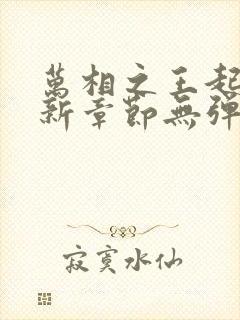 萬相之王起
新章節無彈
寂寞水仙